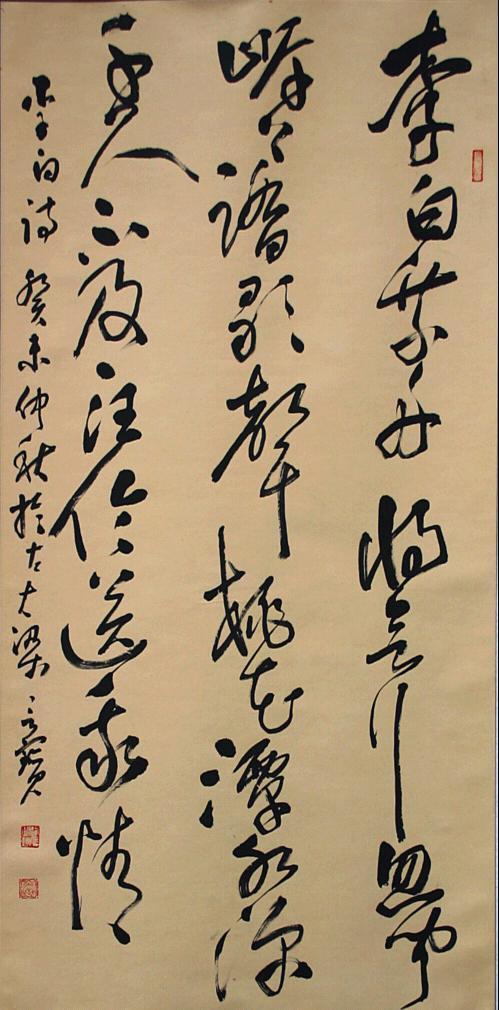 李白乘舟将欲行忽闻
岸上踏歌聲桃花潭水深
千尺不及汪倫送我情
李白诗 癸未仲秋於古大梁 言寶